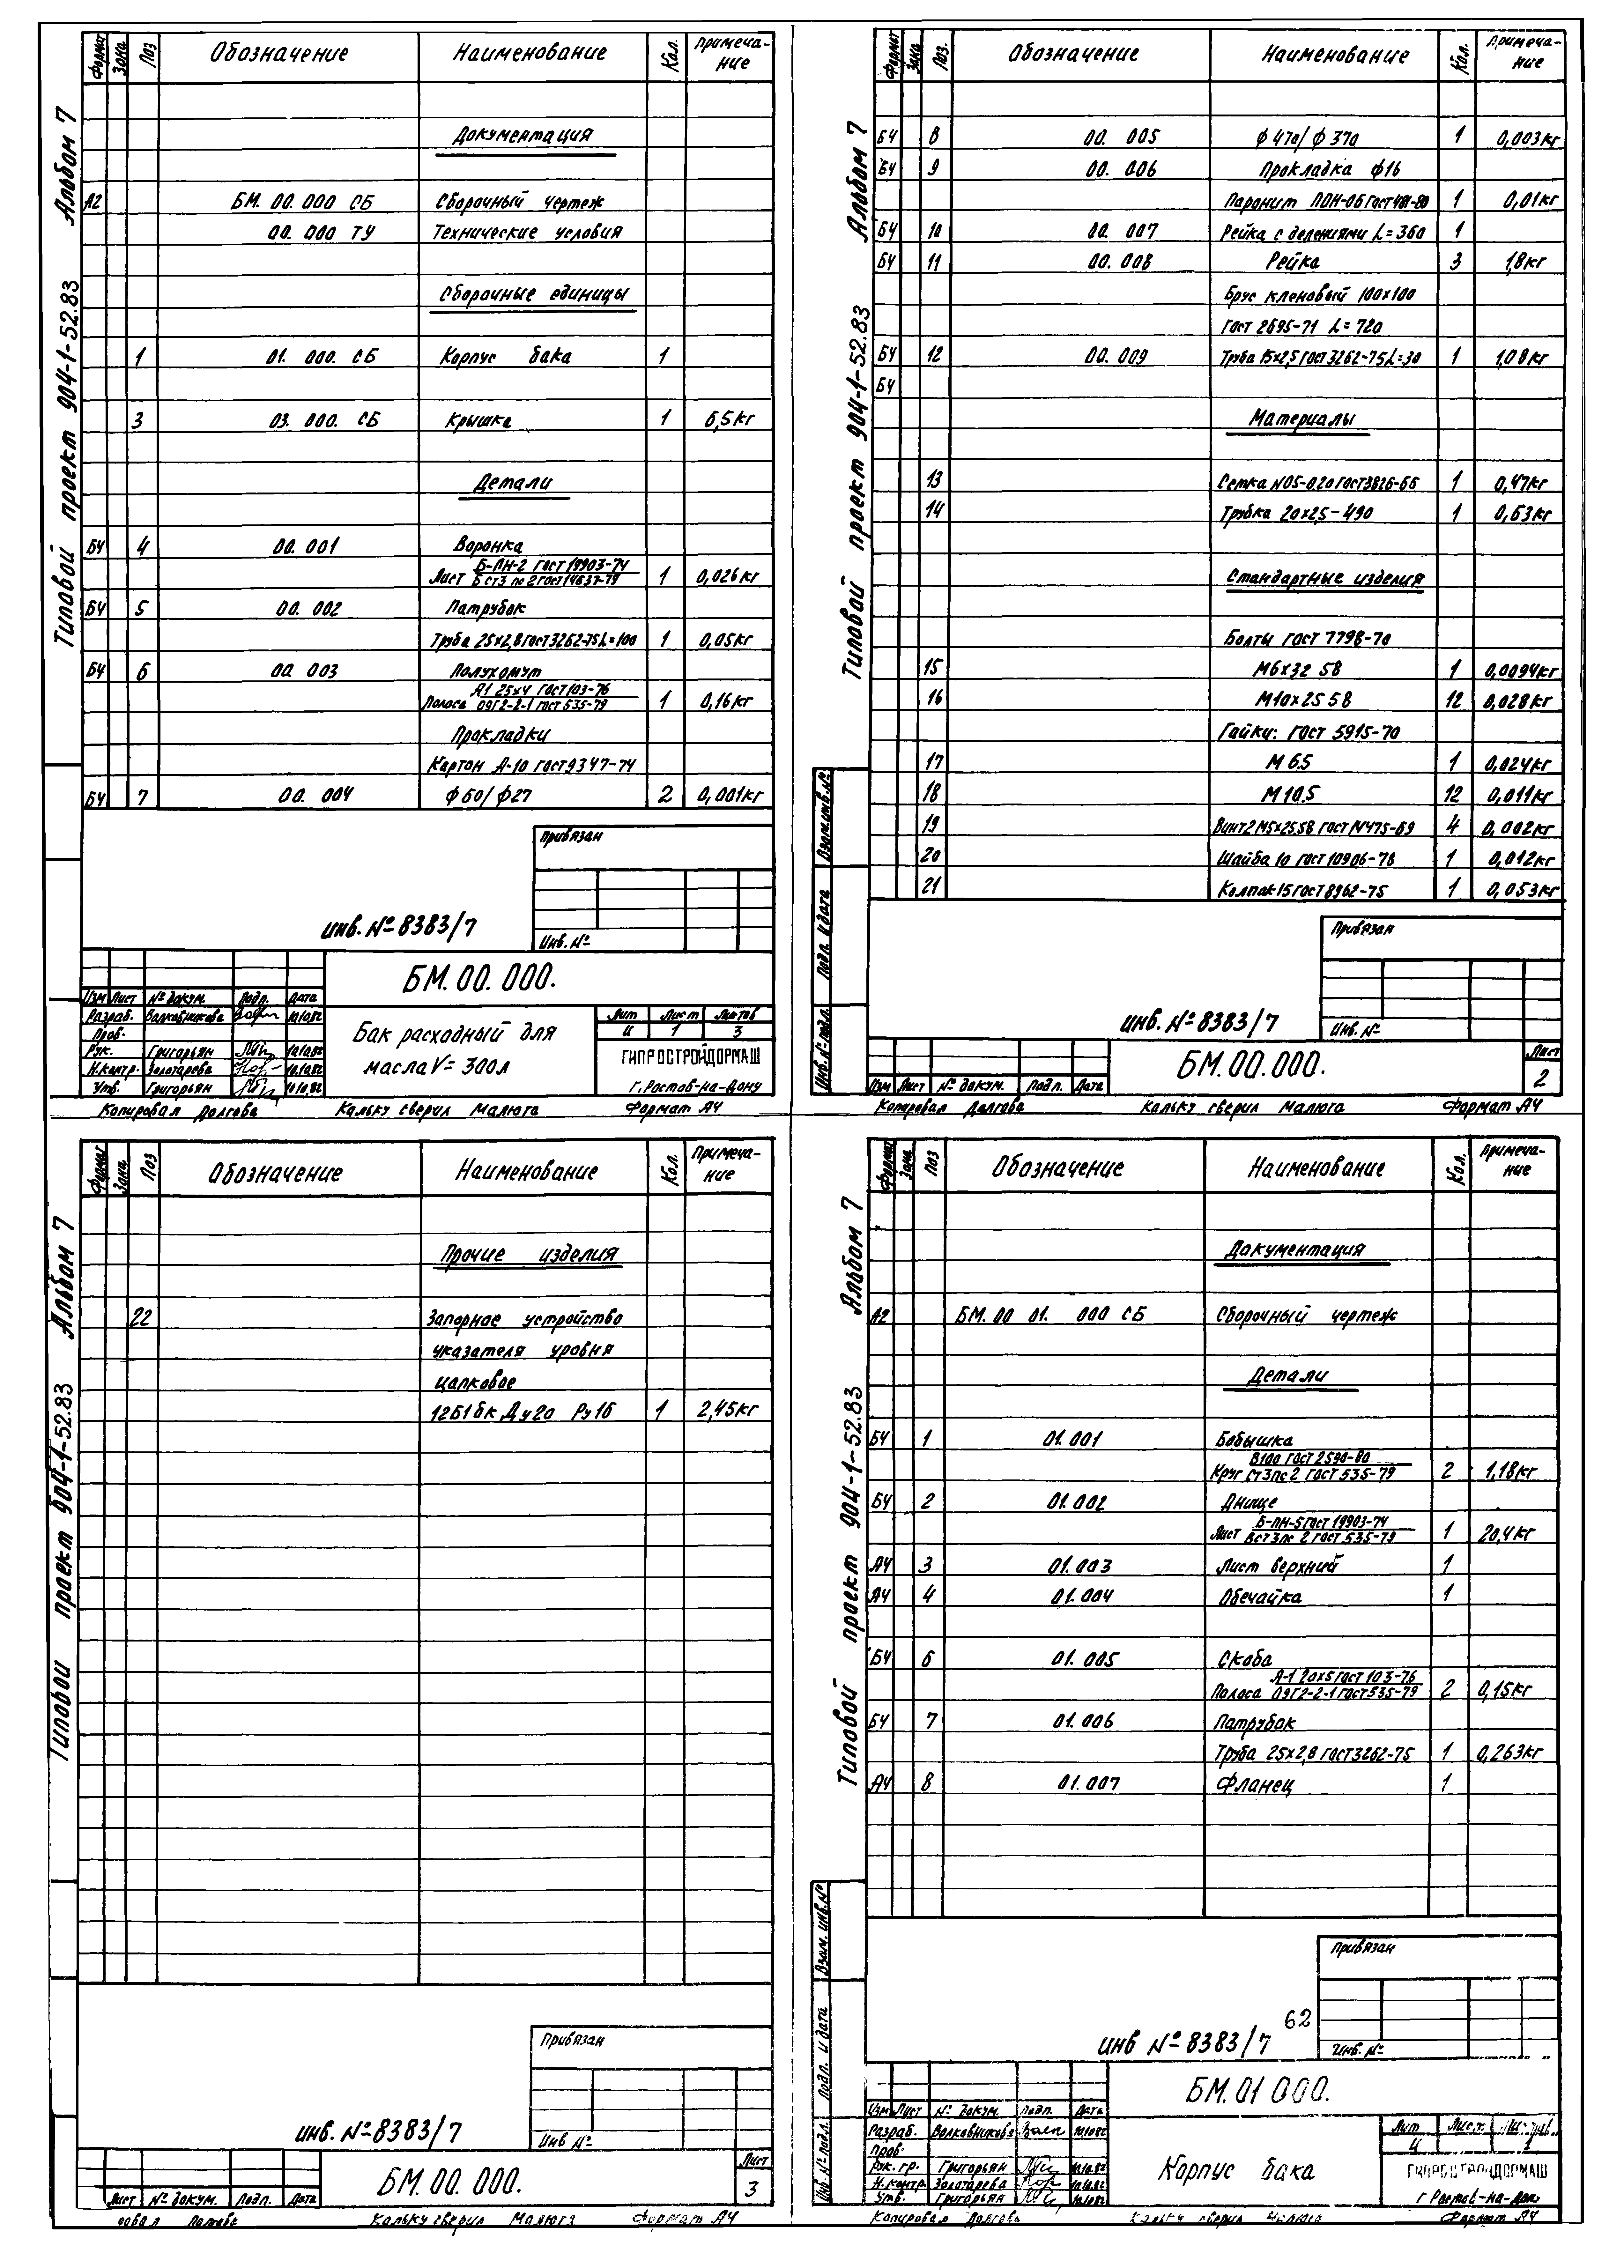 Альбом 7
Типовой проект 904-1-52.83
Формат Зона Поз Обозначение Наименование Кол. Примеча-
ние
Документация
А2 БМ. 00. 000 СБ Сборочный чертеж
00. 000 ТУ Технические условия
Сборочные единицы
1 01. 000. СБ Корпус бака 1
3 03. 000. СБ Крышка 1 6,5кг
Детали
БЧ 4 00. 001 Воронка
Б-ПН-2 ГОСТ 19903-74
Лист Б ст3 пс 2 ГОСТ 14637-79 1 0,026кг
БЧ 5 00. 002 Патрубок
Труба 25х2,8 ГОСТ 3262-75 L=100 1 0,05кг
БЧ 6 00. 003 Полухомут
А1 25х4 ГОСТ 103-76
Полоса 09Г2-2-1 ГОСТ 535-79 1 0,16кг
Прокладки
Картон А-10 ГОСТ 9347-74
БЧ 7 00. 004 ф60/ф27 2 0,001кг
Привязан
инв. № 8383/7
Инв. №
БМ. 00. 000.
Изм Лист № докум. Подп. Дата
Разраб. Волковникова 10.10.82
Пров.
Рук. Григорьян 10.10.82
Н.контр. Золотарева 10.10.82
Утв. Григорьян 10.10.82
Бак расходный для
масла V= 300л
Лит Лист Листов
И 1 3
ГИПРОСТРОЙДОРМАШ
г. Ростов-на-Дону
Копировал Долгова Кальку сверил Малюга Формат А4
Альбом 7
Типовой проект 904-1-52.83
Формат Зона Поз. Обозначение Наименование Кол. Примеча-
ние
БЧ 8 00. 005 ф 470/ф 370 1 0,003кг
БЧ 9 00. 006 Прокладка ф16
Паронит ПОН-0,6 ГОСТ 481-80 1 0,01кг
БЧ 10 00. 007 Рейка с делениями L=360 1
БЧ 11 00. 008 Рейка 3 1,8кг
Брус кленовый 100х100
ГОСТ 2695-71 L=720
БЧ 12 00. 009 Труба 15х2,5 ГОСТ 3262-75 L=30 1 1,08кг
БЧ
Материалы
13 Сетка N05-0.20 ГОСТ 3826-66 1 0,47кг
14 Трубка 20х2,5-490 1 0,63кг
Стандартные изделия
Болты ГОСТ 7798-70
15 М6х32 58 1 0,0094кг
16 М10х25 58 12 0,028кг
Гайки: ГОСТ 5915-70
17 М 6.5 1 0,024кг
18 М 10.5 12 0,011кг
19 Винт 2 М5х25.58 ГОСТ 4 0,002кг
20 Шайба 10 ГОСТ 10906-78 1 0,012кг
21 Колпак 15 ГОСТ 8962-75 1 0,053кг
Взам.инв.№
Подп. и дата
Инв. № подл.
Привязан
инв. № 8383/7
Инв. №
БМ. 00. 000.
Лист
2
Изм Лист № докум. Подп. Дата
Копировал Долгова Кальку сверил Малюга Формат А4
Альбом 7
Типовой проект 904-1-52.83
Формат Зона Поз Обозначение Наименование Кол. Примеча-
ние
Прочие изделия
22 Запорное устройство
указателя уровня
цапковое
12Б1бк Ду20 Ру16 1 2,45кг
Привязан
инв. № 8383/7
Инв №
БМ. 00. 000.
Лист
3
Лист № докум. Подп. Дата
овал Долгова Кальку сверил Малюга Формат А4
Альбом 7
Типовой проект 904-1-52.83
Формат Зона Поз Обозначение Наименование Кол. Примеча-
ние
Документация
А2 БМ. 00 01. 000 СБ Сборочный чертеж
Детали
БЧ 1 01.001 Бобышка
В100 ГОСТ 2590-80
Круг Ст3пс 2 ГОСТ 535-79 2 1,18кг
БЧ 2 01.002 Днище
Б-ПН-5 ГОСТ 19903-74
Лист Вст3пс 2 ГОСТ 535-79 1 20,4кг
А4 3 01.003 Лист верхний 1
А4 4 01.004 Обечайка 1
БЧ 6 01.005 Скоба
А-1 20х5 ГОСТ 103-76
Полоса 09Г2-2-1 ГОСТ 535-79 2 0,15кг
БЧ 7 01.006 Патрубок
Труба 25х2,8 ГОСТ 3262-75 1 0,263кг
А4 8 01.007 Фланец 1
Взам. инв.№
Подп. и дата
Инв. № подл.
Привязан
62
инв № 8383/7
Инв. №
БМ. 01 000.
Изм Лист № докум. Подп. Дата
Разраб. Волковникова 10.10.82
Пров.
Рук. гр. Григорьян 10.10.82
Н.контр Золотарева 10.10.82
Утв. Григорьян 10.10.82
Корпус бака
Лит Лист Листов
И 1
ГИПРОСТРОЙДОРМАШ
г Ростов-на-Дону
Копировал Долгова Кальку сверил Малюга Формат А4